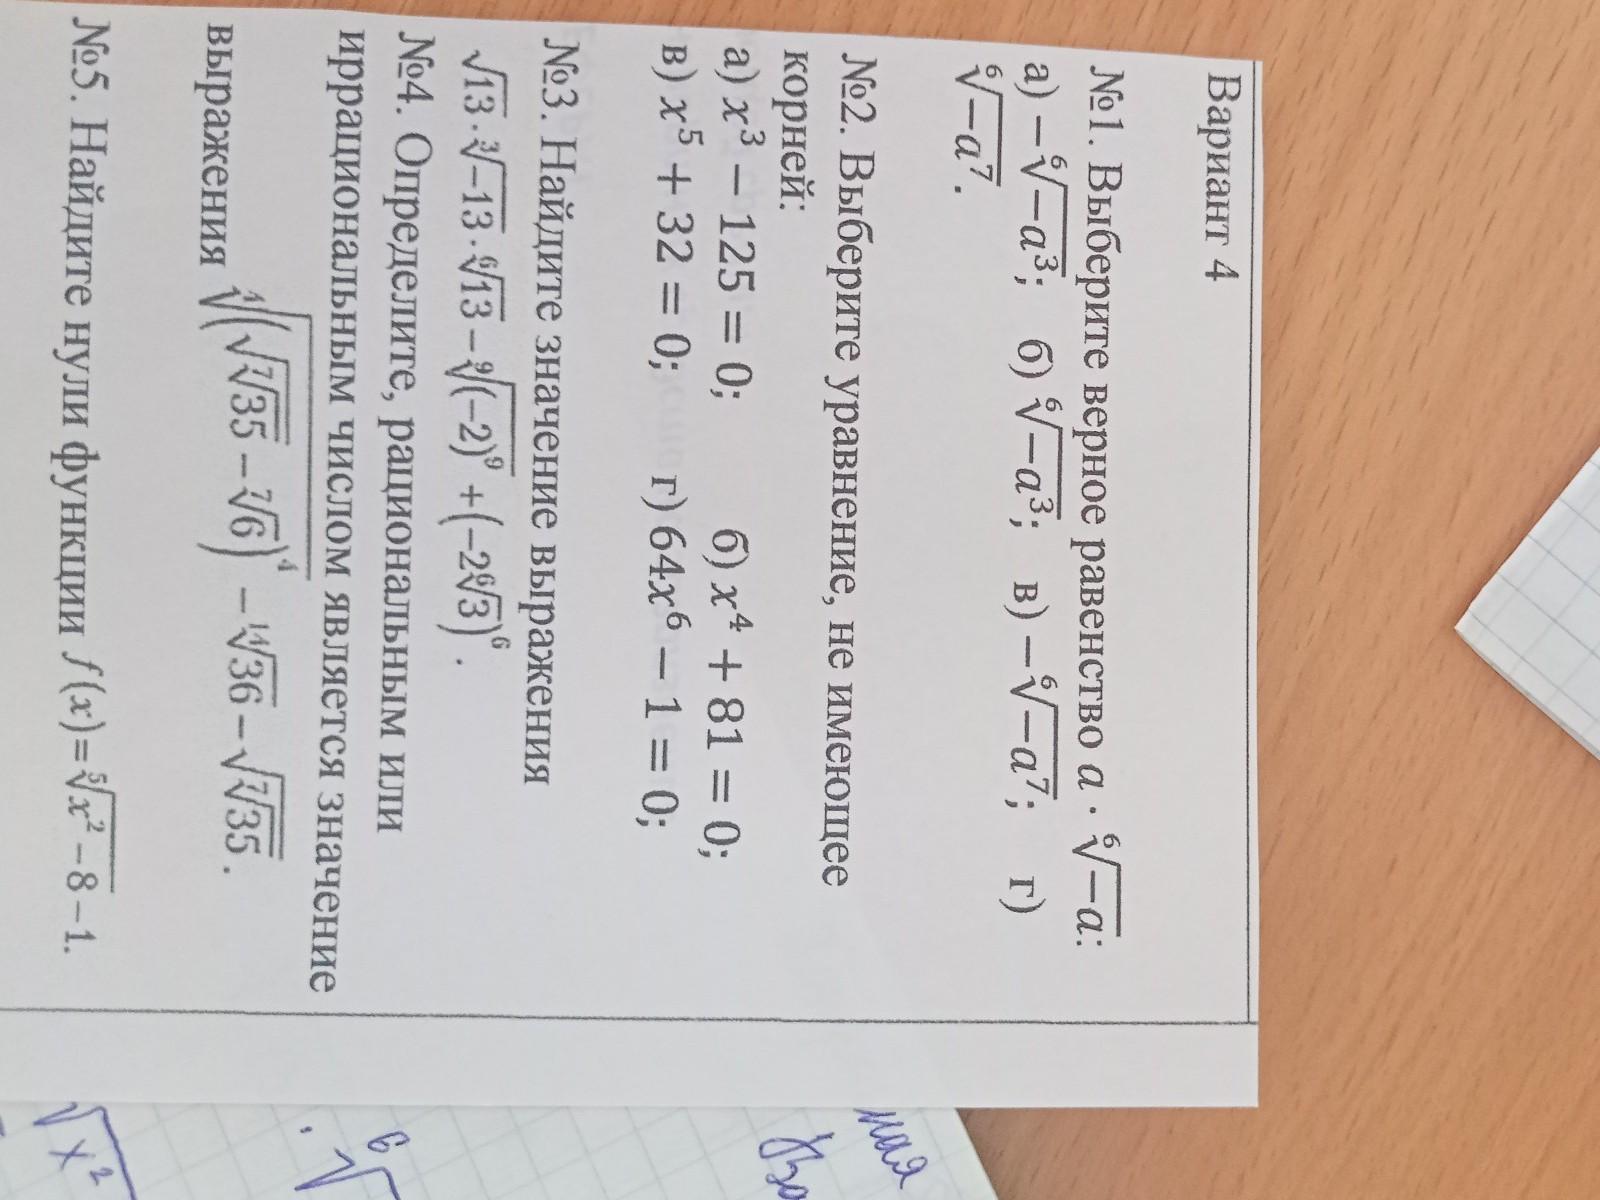 Вариант 4
№1. Выберите верное равенство a · ⁶√(−a):
а) −⁶√(−a³); б) ⁶√(−a³); в) −⁶√(−a⁷); г)
⁶√(−a⁷).
№2. Выберите уравнение, не имеющее
корней:
а) x³ − 125 = 0; б) x⁴ + 81 = 0;
в) x⁵ + 32 = 0; г) 64x⁶ − 1 = 0;
№3. Найдите значение выражения
√13·³√(−13)·⁶√13 − ⁹√((−2)⁹) + (−2⁶√3)⁶.
№4. Определите, рациональным или
иррациональным числом является значение
выражения ⁴√((√(⁷√35) − ⁷√6)⁴) − ¹⁴√36 − √(⁷√35).
№5. Найдите нули функции f(x)=⁵√(x²−8)−1.
ная
⁶√
√x²